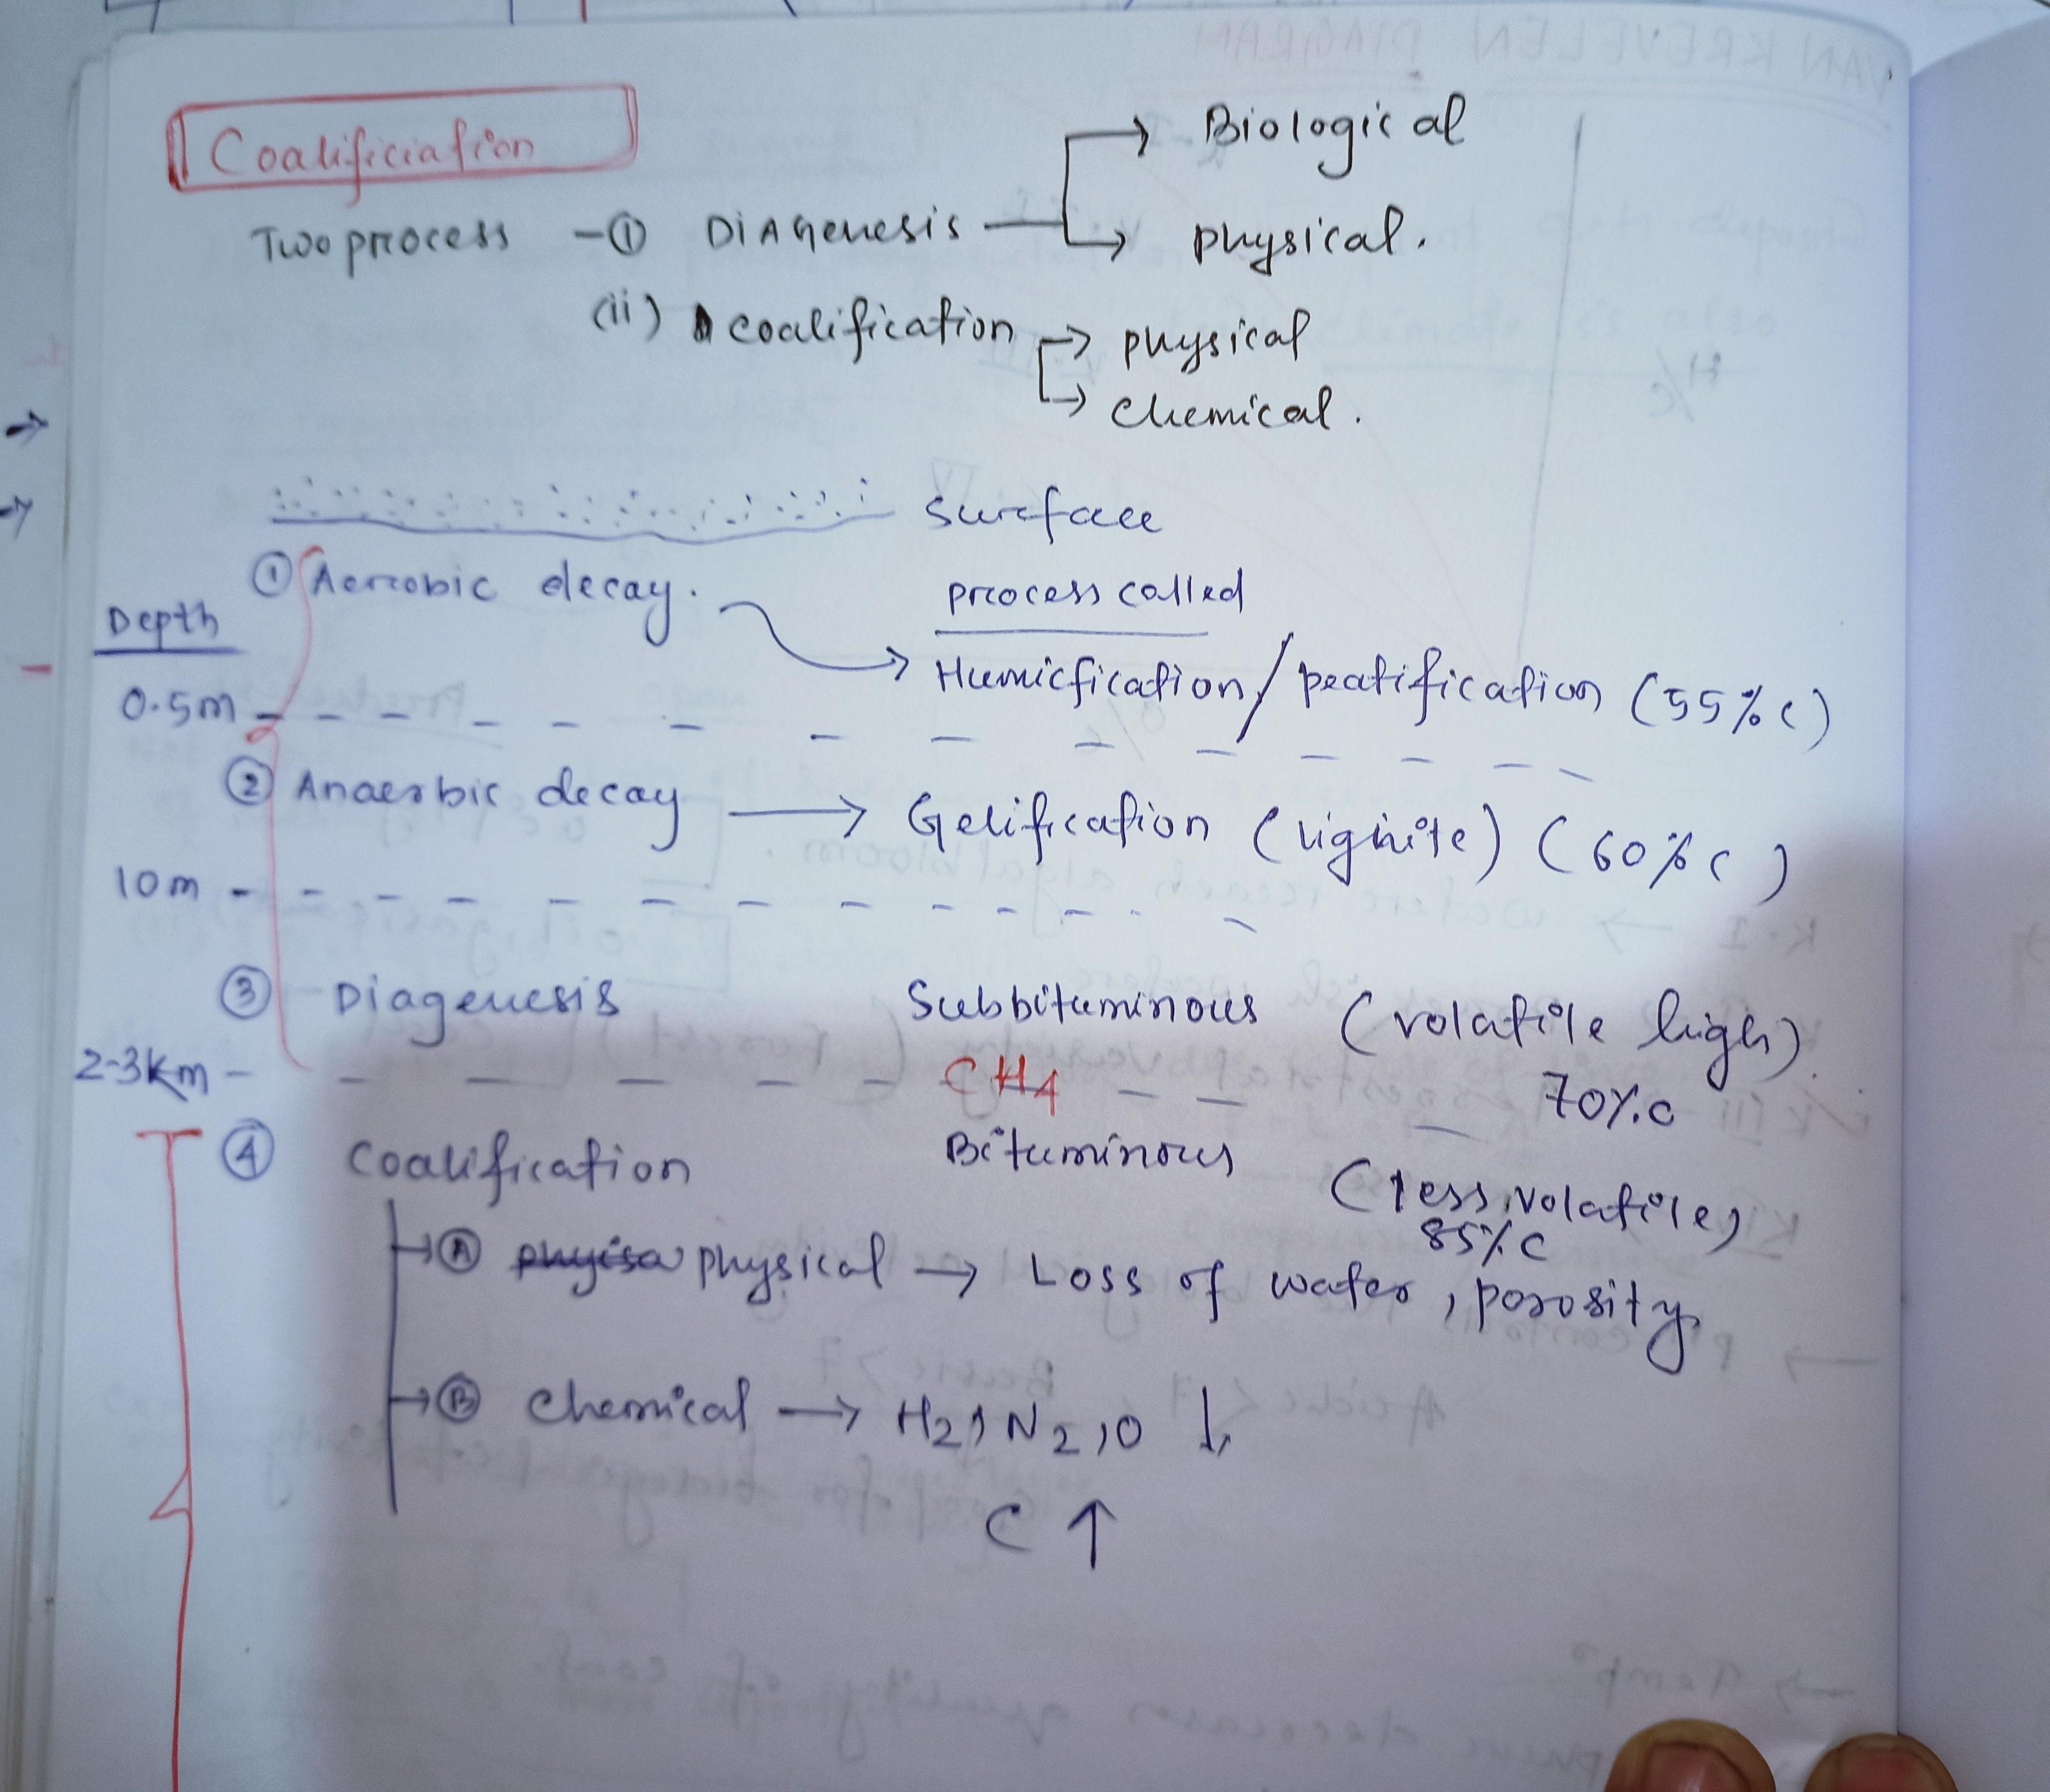 Coalificiation
Biological
Two process - ① DiAgenesis
physical.
(ii) coalification → physical
→ chemical.
Surface
① Aerobic decay.
process called
Depth
→ Humicfication / peatification (55% c)
0.5m
② Anaerbic decay → Gelification (lignite) (60% c)
10m
③ Diagenesis Subbituminous (volatile high)
2-3km CH4 70%.c
④ Coalification Bituminous (less volatile)
85% C
→ Ⓐ physical → Loss of water, porosity
→ Ⓑ chemical → H2, N2, O ↓
C ↑